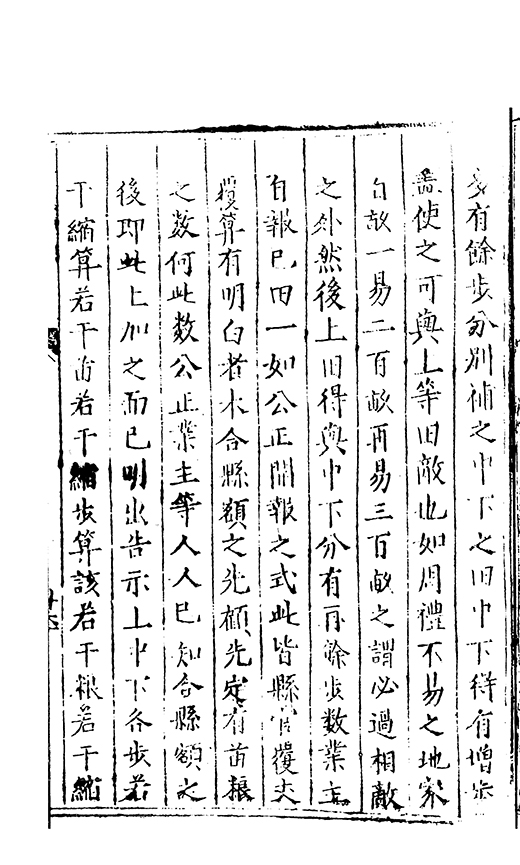 有餘步分別補之中下之田中下得有增步
使之可與上等田敵也如周禮不易之地家
百畝一易二百畝再易三百畝之謂必過相敵
之外然後上田得與中下分有再餘步數業主
自報已田一如公正開報之式此皆縣官覆丈
覆算有明白者水合縣額之先額先定有畝粮
之數何此數公正業主等人人已知合縣額之
後即此上加之而已明出告示上中下各步若
干縮算若干畝若干縮步算該若干粮若干縮